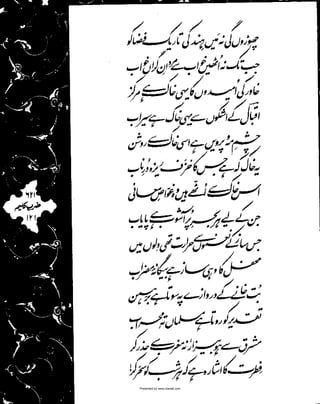 چھوڑوں گی نہ میں ہند کی تاریک فضا کو
جب تک نہ اٹھیں خواب سے مردانِ گراں خواب
خاور کی امیدوں کا یہی خاک ہے مرکز
اقبال کے اشکوں سے یہی خاک ہے سیراب
چشمِ مہ و پرویں ہے اسی خاک سے روشن
یہ خاک کہ ہے جس کا خزف ریزہ دُرِ ناب
اس خاک سے اٹھے ہیں وہ غواصِ معانی
جن کے لیے ہر بحرِ پُر آشوب ہے پایاب
جس ساز کے نغموں سے حرارت تھی دلوں میں
محفل کا وہی ساز ہے بیگانۂ مضراب
بت خانے کے دروازے پہ سوتا ہے برہمن
تقدیر کو روتا ہے مسلماں تہِ محراب
مشرق سے ہو بیزار نہ مغرب سے حذر کر
فطرت کا اشارہ ہے کہ ہر شب کو سحر کر!
۶۲۱
ضربِ کلیم
۱۲۱
Presented by www.ziaraat.com